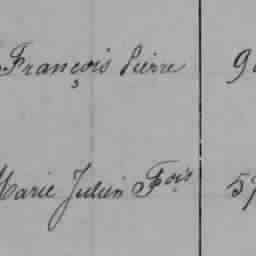 François Pierre 9
Marie Julien Fois 57